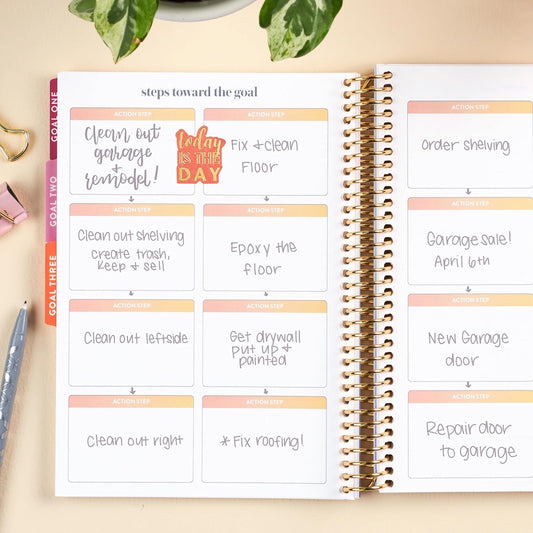 GOAL ONE
GOAL TWO
GOAL THREE
steps toward the goal
ACTION STEP
Clean out
garage
+
remodel!
today
IS THE
DAY
ACTION STEP
Clean out shelving
create trash,
Keep + sell
ACTION STEP
Clean out leftside
ACTION STEP
Clean out right
ACTION STEP
Fix + clean
Floor
ACTION STEP
Epoxy the
floor
ACTION STEP
Get drywall
put up +
painted
ACTION STEP
* Fix roofing!
ACTION STEP
Order shelving
ACTION STEP
Garage sale!
April 6th
ACTION STEP
New Garage
door
ACTION STEP
Repair door
to garage